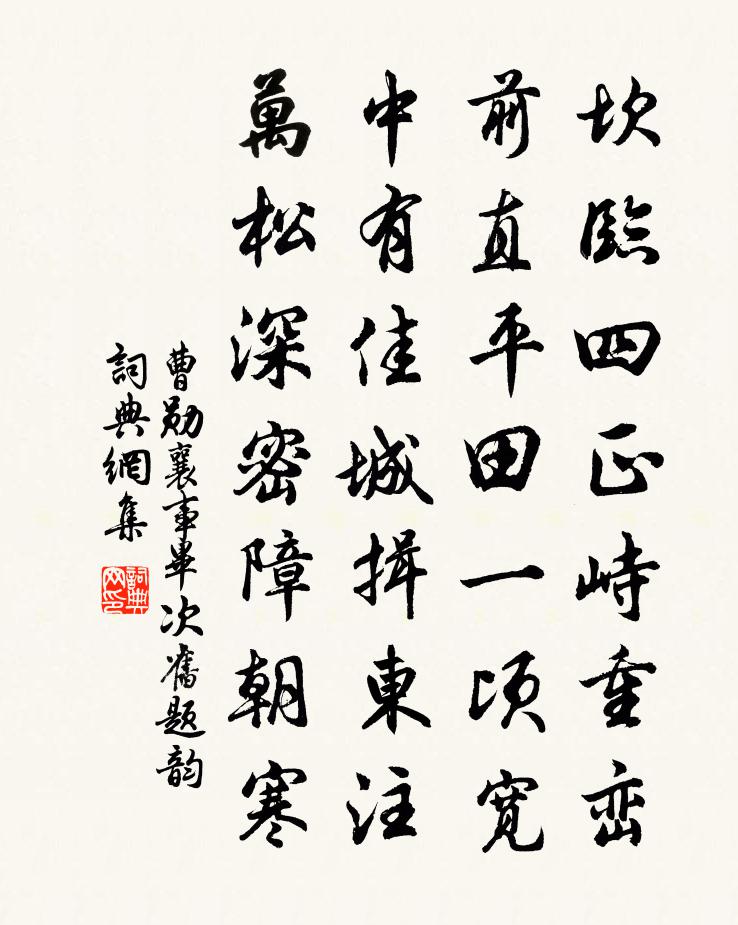 坎臨四正峙重峦
前直平田一頃寛
中有佳城揖東注
萬松深密障朝寒
曹勛襄事畢次舊題韵
詞典網集
詞典网印